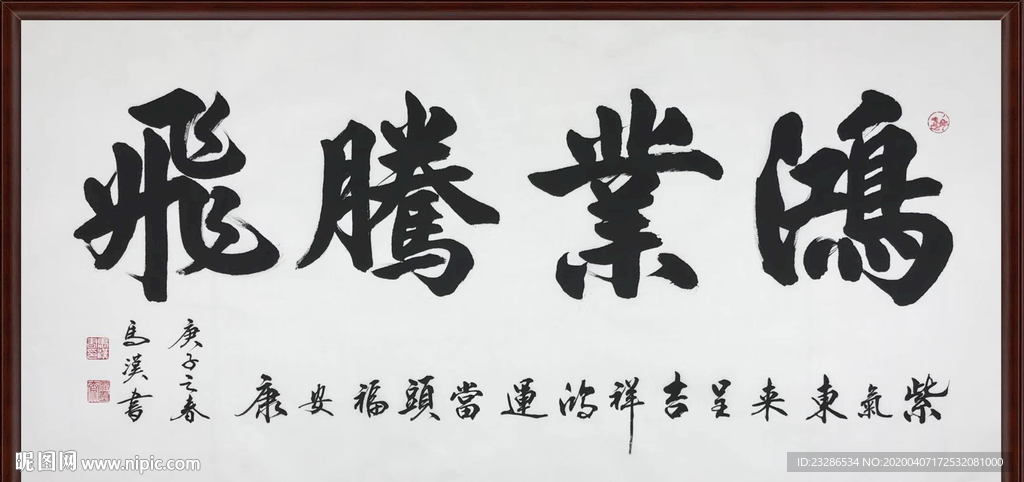 鴻業騰飛
紫氣東来呈吉祥鴻運當頭福安康
庚子之春
馬漢書
昵图网 www.nipic.com
ID:23286534 NO:20200407172532081000